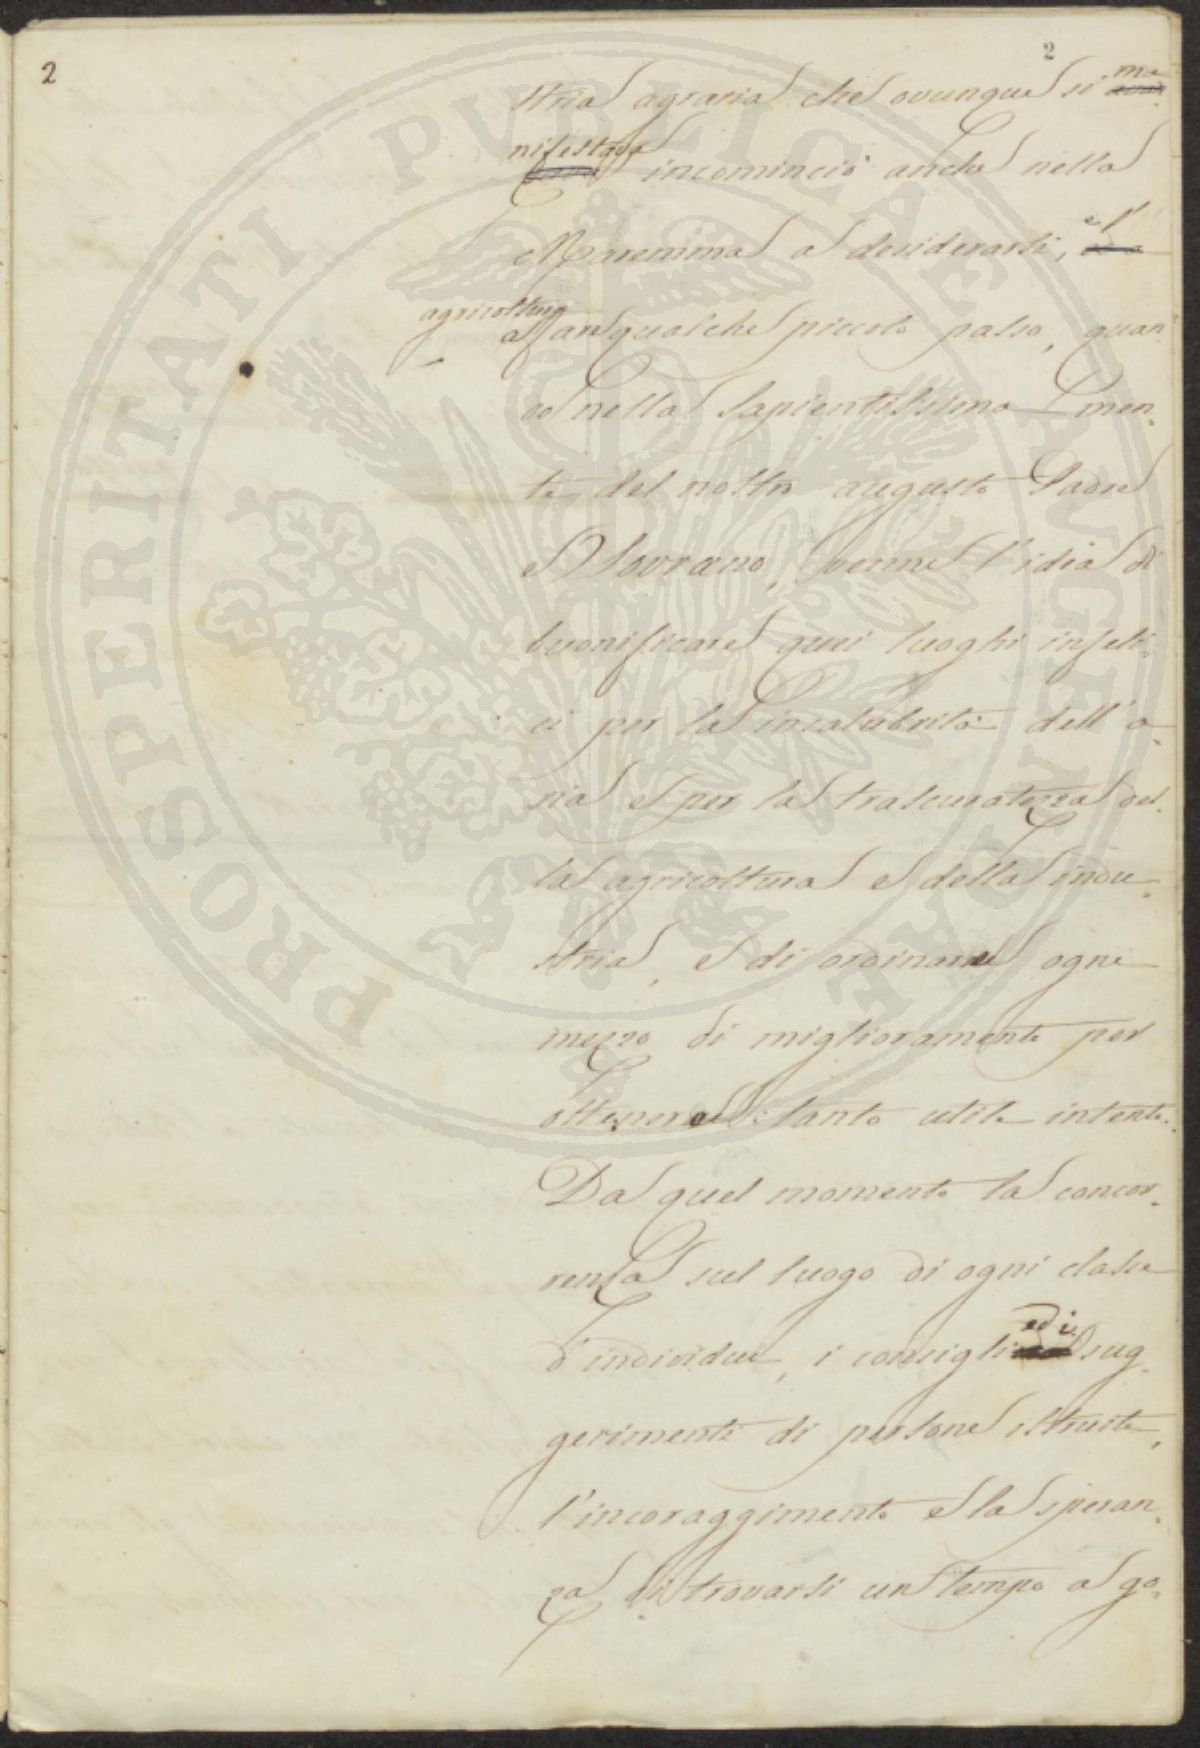 2
2
stria agraria che ovunque si ma
nifestava incominciò anche nella
Maremma a desiderarsi, e l'
agricoltura
a far qualche piccolo passo, quan-
do nella sapientissima men-
te del nostro augusto Padre
e Sovrano, venne l'idea di
buonificare quei luoghi infeli-
ci per la insalubrità dell'a-
ria e per la trascuratezza del-
la agricoltura e della indu-
stria, e di ordinarne ogni
mezzo di miglioramento per
ottenere tanto utile intento.
Da quel momento la concor-
renza sul luogo di ogni classe
d'individui, i consigli ed i sug-
gerimenti di persone istruite,
l'incoraggimento e la speran-
za di trovarsi un tempo a go-
PROSPERITATI PVBLICAE AVGENDAE
A